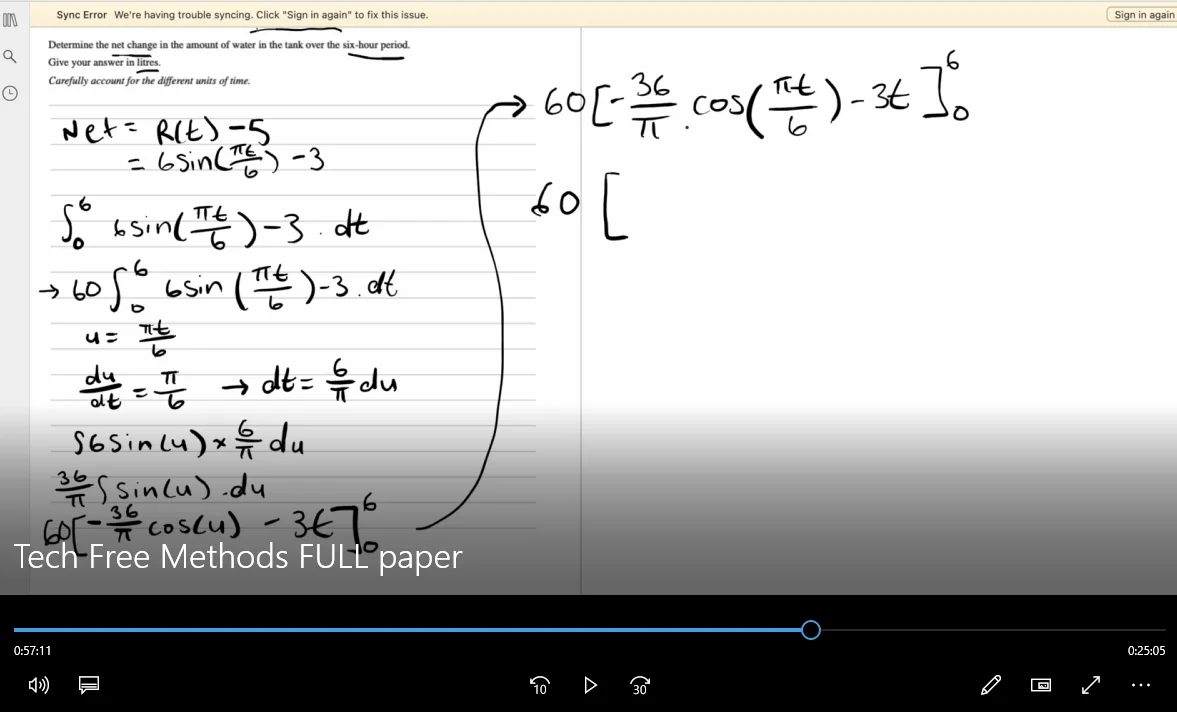 Sync Error We're having trouble syncing. Click "Sign in again" to fix this issue.
Sign in again
Determine the net change in the amount of water in the tank over the six-hour period.
Give your answer in litres.
Carefully account for the different units of time.
Net = R(t) - 5
= 6sin(πt/6) - 3
∫₀⁶ 6sin(πt/6) - 3 . dt
→ 60 ∫₀⁶ 6sin(πt/6) - 3 . dt
u = πt/6
du/dt = π/6 → dt = 6/π du
∫6sin(u) × 6/π du
36/π ∫ sin(u) . du
60[-36/π cos(u) - 3t]₀⁶
→ 60[-36/π . cos(πt/6) - 3t]₀⁶
60 [
Tech Free Methods FULL paper
0:57:11
0:25:05
10
30